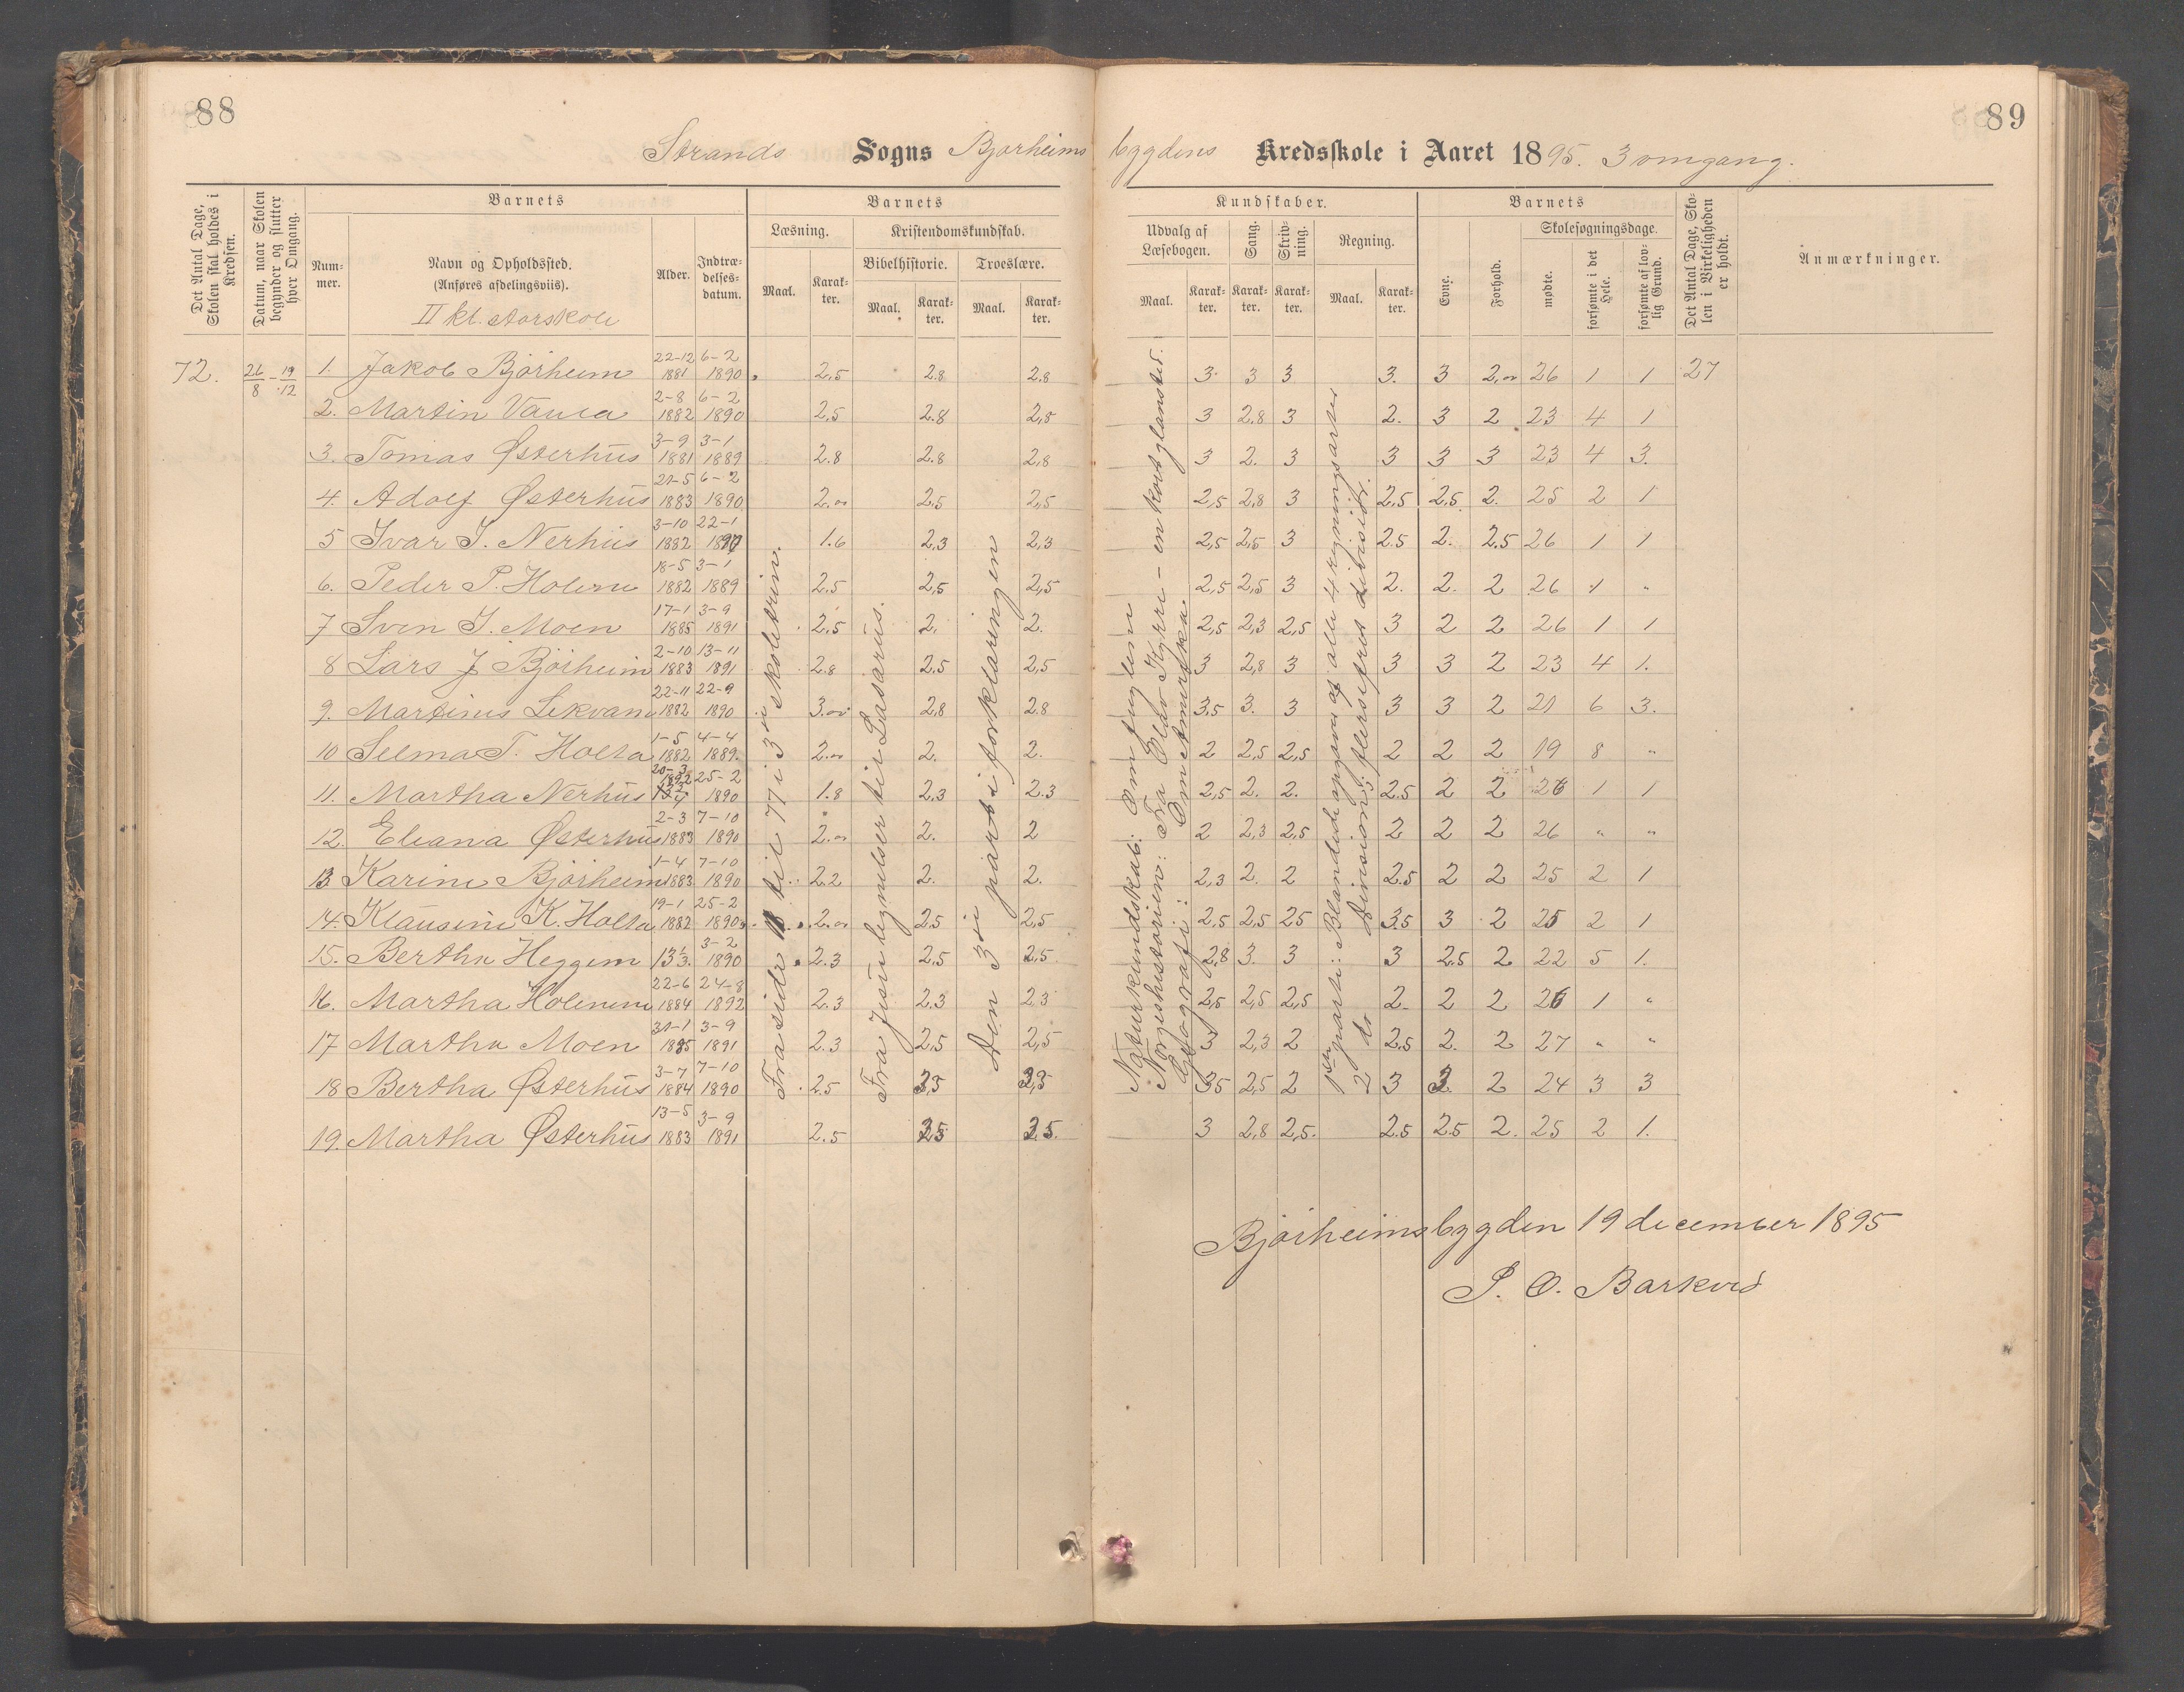 88
89
Strands Sogns Bjørheims bygdens Kredsskole i Aaret 1895. 3 omgang.
Det Antal Dage, Skolen skal holdes i Kredsen.
Datum, naar Skolen begynder og slutter hver Omgang.
Barnets
Nummer.
Navn og Opholdssted.
(Anføres afdelingsviis).
II kl. Aarskole
Alder.
Indtrædelsesdatum.
Barnets
Læsning.
Maal.
Karakter.
Kristendomskundskab.
Bibelhistorie.
Troeslære.
Maal.
Karakter.
Maal.
Karakter.
Kundskaber.
Udvalg af Læsebogen.
Maal.
Karakter.
Sang.
Karakter.
Skrivning.
Karakter.
Regning.
Maal.
Karakter.
Barnets
Evne.
Forhold.
Skolesøgningsdage.
mødte.
forsømte i det Hele.
forsømte af lovlig Grund.
Det Antal Dage, Skolen i Virkeligheden er holdt.
Anmærkninger.
72. 26/8 - 19/12
1. Jakob Bjørheim 22-12 1881 6-2 1890 2.5 2.8 2.8 3 3 3 3. 3 2,00 26 1 1 27
2. Martin Vauca 2-8 1882 6-2 1890 2.5 2.8 2,8 3 2,8 3 2. 3 2 23 4 1
3. Tomas Østerhus 3-9 1881 3-1 1889 2.8 2.8 2,8 3 2. 3 3 3 3 23 4 3.
4. Adolf Østerhus 21-5 1883 6-2 1890 2.00 2.5 2,5 2,5 2,8 3 2,5 2,5 2. 25 2 1
5 Ivar I. Nerhus 3-10 1882 22-1 1890 1.6 2,3 2,3 2,5 2,5 3 2.5 2. 2.5 26 1 1
6. Peder P. Holene 18-5 1882 3-1 1889 2.5 2,5 2,5 2,5 2,5 3 2. 2. 2 26 1 "
7 Sven I. Moen 17-1 1885 3-9 1891 2.5 2. 2. 2,5 2,3 2,5 3 2 2 26 1 1
8 Lars J Bjørheim 2-10 1883 13-11 1891 2.8 2.5 2,5 3 2,8 3 3 3 2 23 4 1.
9. Martinus Lekvam 22-11 1882 22-9 1890 3.00 2,8 2.8 3,5 3. 3 3 3 2 21 6 3.
10 Selma T. Holta 1-5 1882 4-4 1889. 2.00 2. 2. 2 2,5 2,5 2 2 2 19 8 "
11. Martha Nerhus 25-2 1890 1.8 2,3 2.3 2,5 2. 2. 2.5 2 2 26 1 1
12. Eliana Østerhus 2-3 1883 7-10 1890 2.00 2. 2 2 2,3 2,5 2 2 2 26 " "
13 Karine Bjørheim 1-4 1883 7-10 1890 2.2 2. 2. 2,3 2. 2 2.5 2 2 25 2 1
14. Klausine K. Holta 19-1 1882 25-2 1890 2.00 2.5 2,5 2,5 2,5 25 3.5 3 2 25 2 1
15. Bertha Heggem 13 1/3. 3-2 1890 2.3 2,5 2,5. 2,8 3. 3 3 2.5 2 22 5 1.
16. Martha Holenene 22-6 1884 24-8 1892 2.3 2.3 2.3 2,5 2,5 2,5 2. 2 2 26 1 "
17 Martha Moen 31-1 1885 3-9 1891 2.3 2,5 2,5 3 2,3 2 2.5 2. 2 27 " "
18 Bertha Østerhus 3-7 1884 7-10 1890 2.5 2,5 2,5 3,5 2,5 2 3 3. 2 24 3 3
19. Martha Østerhus 13-5 1883 3-9 1891 2.5 2.5 2.5. 3 2,8 2,5. 2.5 2.5 2. 25 2 1.
Fra side 11 til 77 i 3die skoletrin.
Fra Jesu lignelser til Lasarus.
Den 3die part i forklaringen
Naturkundskab: Om fuglene
Norgeshistorien: Fra Olav Kyrre - en kort glanstid.
Geografi: Om Amerika.
1ste parti: Blandede opgaver af alle 4 regningsarter
2 do Division; flersifret divisior.
Bjørheimsbygden 19 december 1895
P. O. Barkved